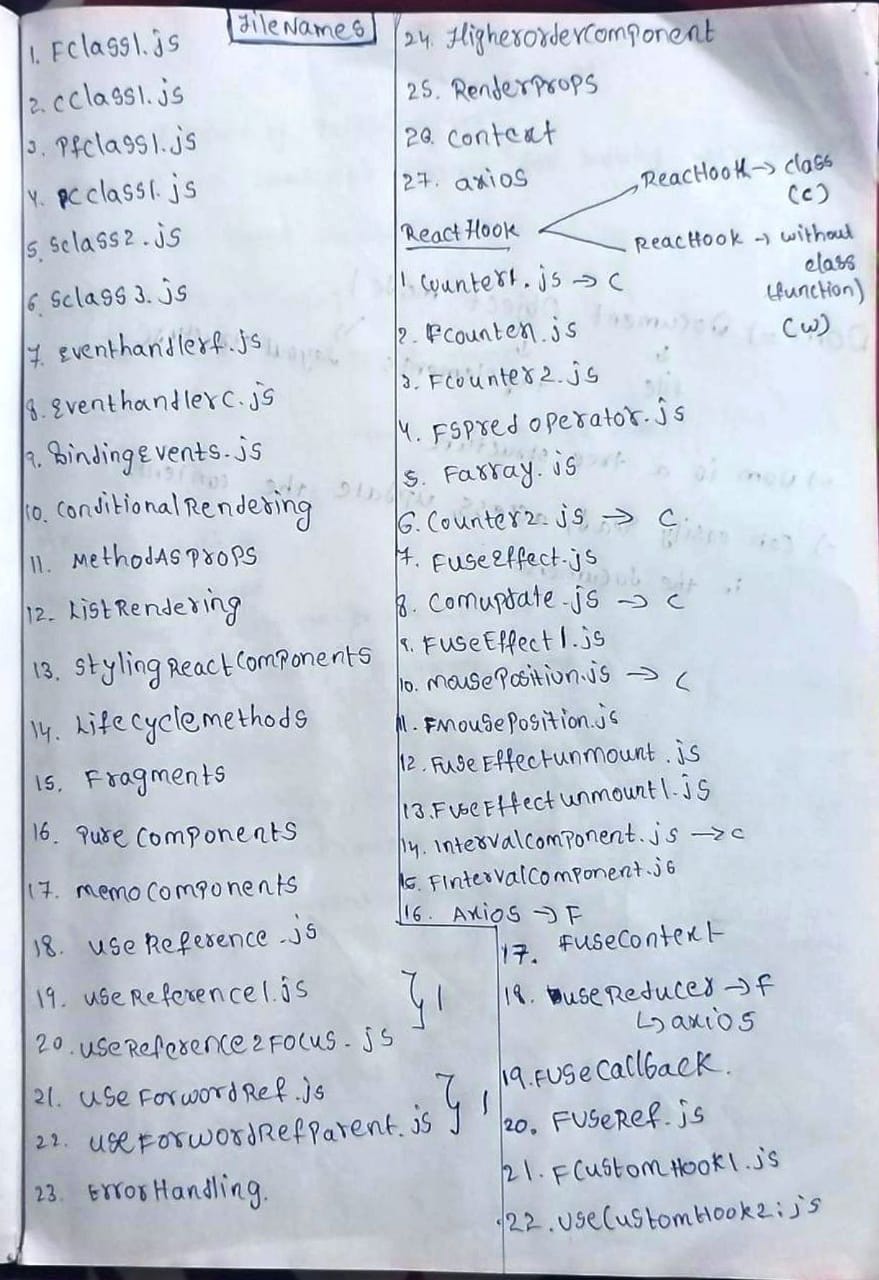 FileNames
1. Fclass1.js
2. cclass1.js
3. Pfclass1.js
4. pcclass1.js
5. Sclass2.js
6. Sclass3.js
7. Eventhandlerf.js
8. Eventhandlerc.js
9. BindingEvents.js
10. Conditional Rendering
11. MethodAsProps
12. List Rendering
13. Styling React Components
14. Lifecyclemethods
15. Fragments
16. Pure Components
17. memo components
18. use Reference .js
19. useReference1.js
20. useReference2Focus.js
21. use ForwordRef.js
22. useForwordRefParent.js
23. ErrorHandling.
24. Higherordercomponent
25. Renderprops
26. context
27. axios
React Hook
ReacHook → class
(c)
ReacHook → without
class
(function)
(w)
1. Counter1.js → C
2. Fcounter1.js
3. Fcounter2.js
4. FSpred operator.js
5. Farray.js
6. Counter2.js → C
7. FuseEffect.js
8. Comupdate.js → C
9. FuseEffect1.js
10. mousePosition.js → C
11. FMousePosition.js
12. FuseEffectunmount.js
13. FuseEffectunmount1.js
14. IntervalComponent.js → C
15. FIntervalComponent.js
16. Axios → F
17. FuseContext
18. useReducer → F
↳ axios
19. FuseCallback.
20. FUSeRef.js
21. FCustomHook1.js
22. useCustomHook2.js